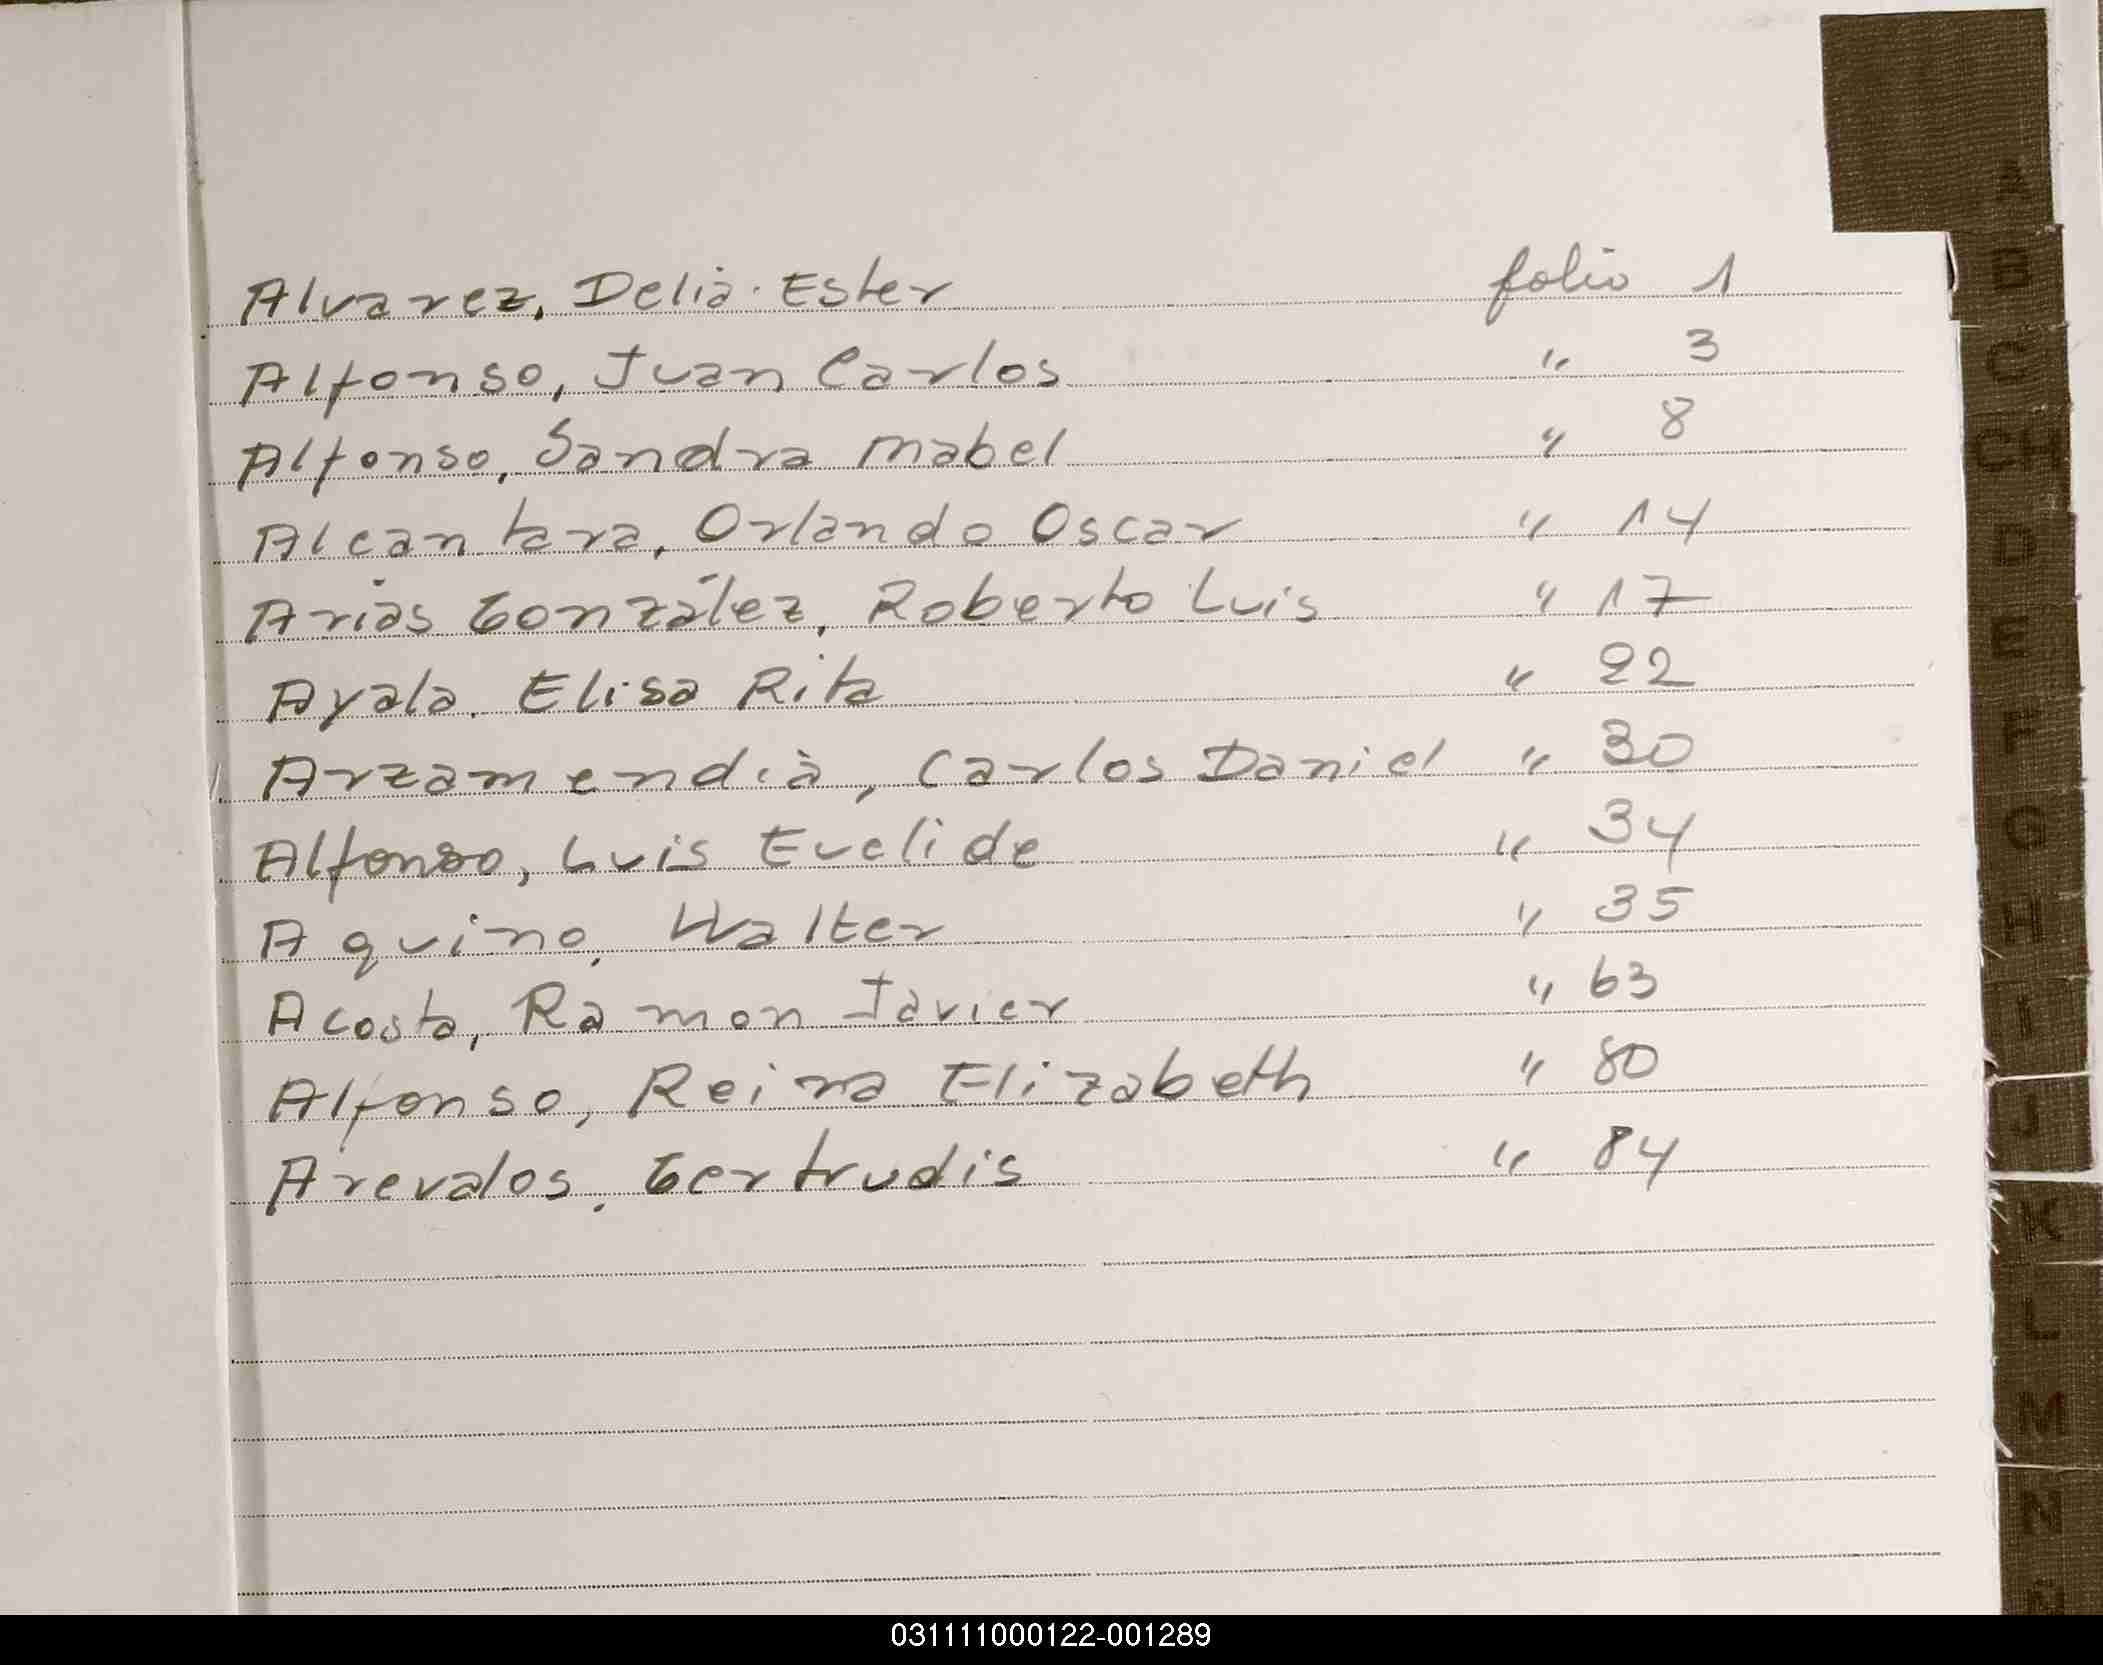 Alvarez, Delia Ester folio 1
Alfonso, Juan Carlos " 3
Alfonso, Sandra Mabel " 8
Alcantara, Orlando Oscar " 14
Arias González, Roberto Luis " 17
Ayala, Elisa Rita " 22
Arzamendia, Carlos Daniel " 30
Alfonso, Luis Euclide " 34
Aquino, Walter " 35
Acosta, Ramon Javier " 63
Alfonso, Reina Elizabeth " 80
Arevalos, Gertrudis " 84
A
B
C
CH
D
E
F
G
H
I
J
K
L
M
N
031111000122-001289